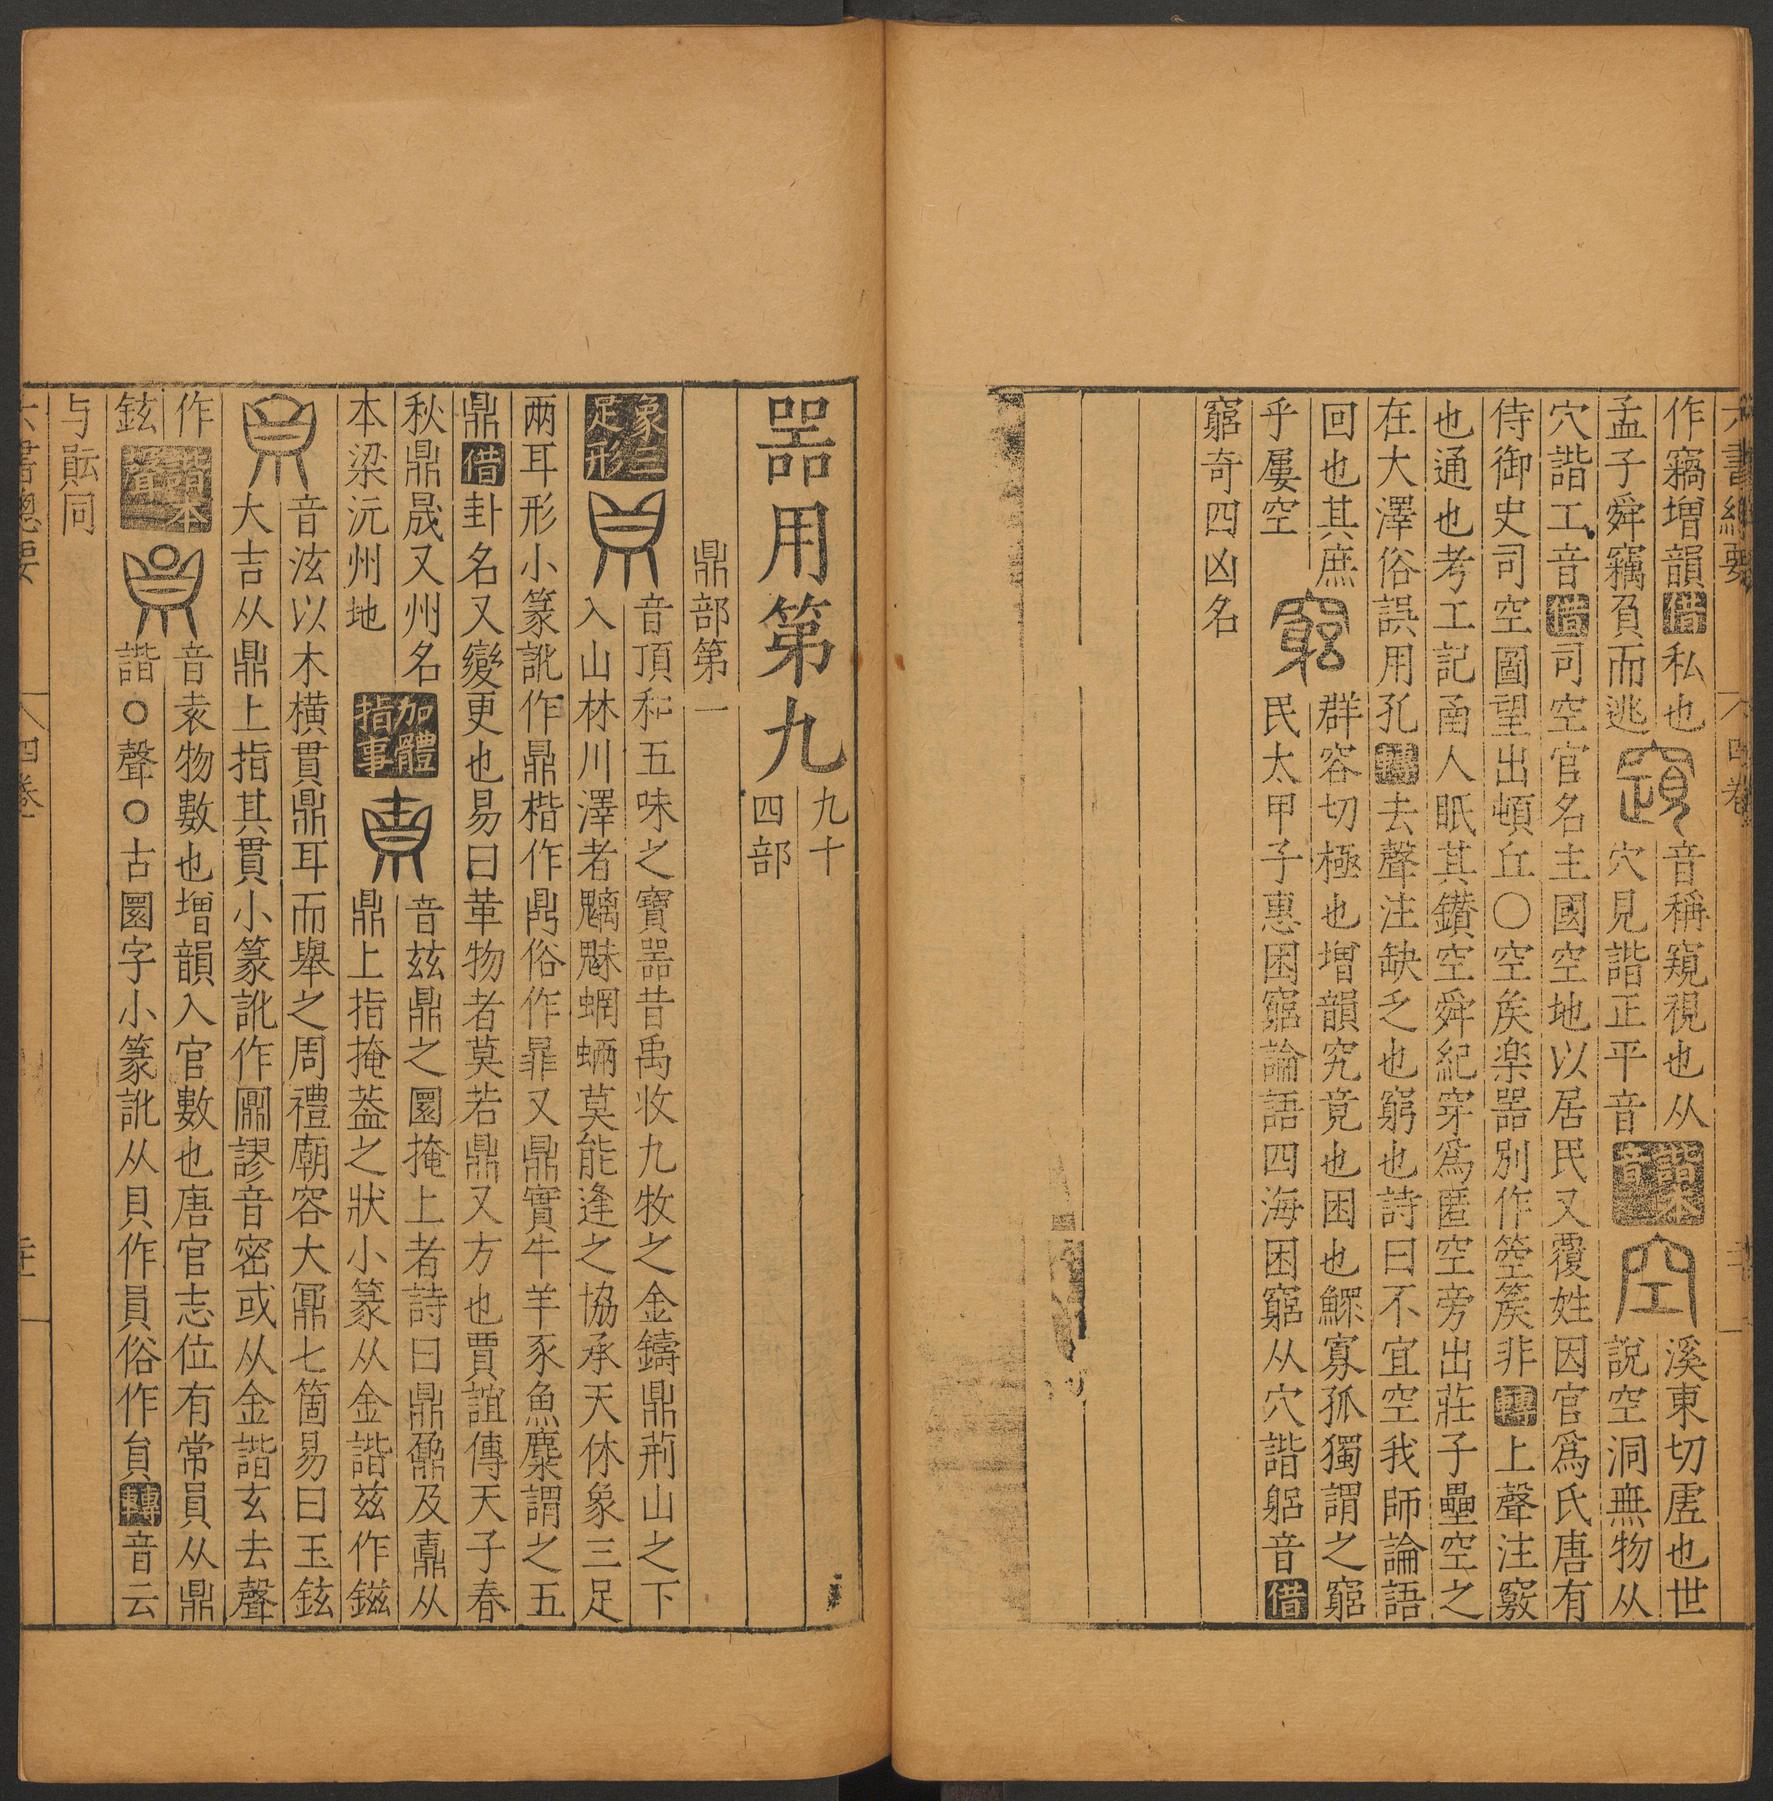 六書總要 四卷
作竊增韻借私也 音稱窺視也从 諧本 溪東切虗也世
孟子舜竊負而逃 穴見諧正平音 音 說空洞無物从
穴諧工音借司空官名主國空地以居民又覆姓因官爲氏唐有
侍御史司空圖望出頓丘〇空矦楽噐別作箜篌非轉上聲注竅
也通也考工記甬人眡其鑽空舜紀穿爲匿空旁出莊子壘空之
在大澤俗誤用孔轉去聲注缺乏也窮也詩曰不宜空我師論語
回也其庶 群容切極也增韻究竟也困也鰥寡孤獨謂之窮
乎屢空 民太甲子惠困窮論語四海困窮从穴諧躳音借
窮奇四凶名
噐用第九 九十
四部
鼎部第一
象三 音頂和五味之寶噐昔禹收九牧之金鑄鼎荊山之下
足形 入山林川澤者魑魅蝄蜽莫能逢之協承天休象三足
兩耳形小篆訛作鼎楷作鼎俗作鼎又鼎實牛羊豕魚麋謂之五
鼎借卦名又變更也易曰革物者莫若鼎又方也賈誼傳天子春
秋鼎晟又州名 加體 音兹鼎之圜掩上者詩曰鼎鼐及鼒从
本梁沅州地 指事 鼎上指掩葢之狀小篆从金諧兹作鎡
音泫以木橫貫鼎耳而舉之周禮廟容大鼏七箇易曰玉鉉
大吉从鼎上指其貫小篆訛作鼏謬音密或从金諧玄去聲
作 諧本 音袁物數也增韻入官數也唐官志位有常員从鼎
鉉 音 諧〇聲〇古圜字小篆訛从貝作員俗作貟轉音云
与貶同
六書總要 四卷